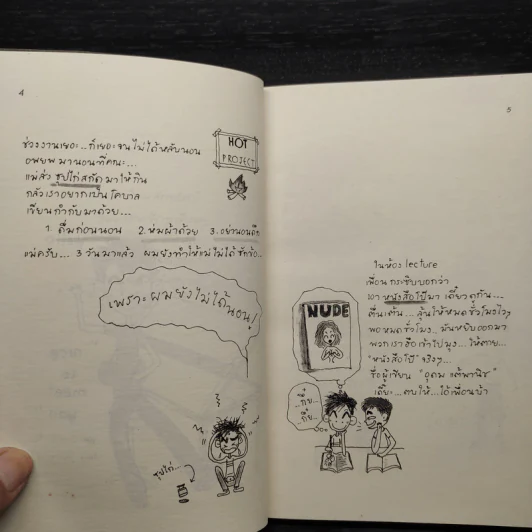 4
ช่วงงานเยอะ..ก็เยอะจนไม่ได้หลับนอน
อพยพมานอนที่คณะ...
แม่ส่ง ซุปไก่สกัด มาให้กิน
กลัวเราอยากเป็นโคบาล
เขียนกำกับมาด้วย...
1. ดื่มก่อนนอน 2. ห่มผ้าด้วย 3. อย่านอนดึก
แม่ครับ... 3 วันมาแล้ว ผมยังทำให้แม่ไม่ได้ซักข้อ...
HOT
PROJECT
เพราะผมยังไม่ได้นอน!
ซุปไก่...
5
ในห้อง lecture
เพื่อนกระซิบบอกว่า
เอา หนังสือโป๊ มา เดี๋ยวดูกัน...
ตื่นเต้น... ลุ้นให้หมดชั่วโมงไวๆ
พอหมดชั่วโมง.. มันหยิบออกมา
พวกเราฮือเข้าไปมุง... ให้ตาย...
"หนังสือโป๊" จริงๆ...
ชื่อผู้เขียน "อุดม แต้พานิช"
เดี๊ยะ... ตบให้... ไอ้เพื่อนบ้า
NUDE
...กึ๋ย
..กึ๋ย..